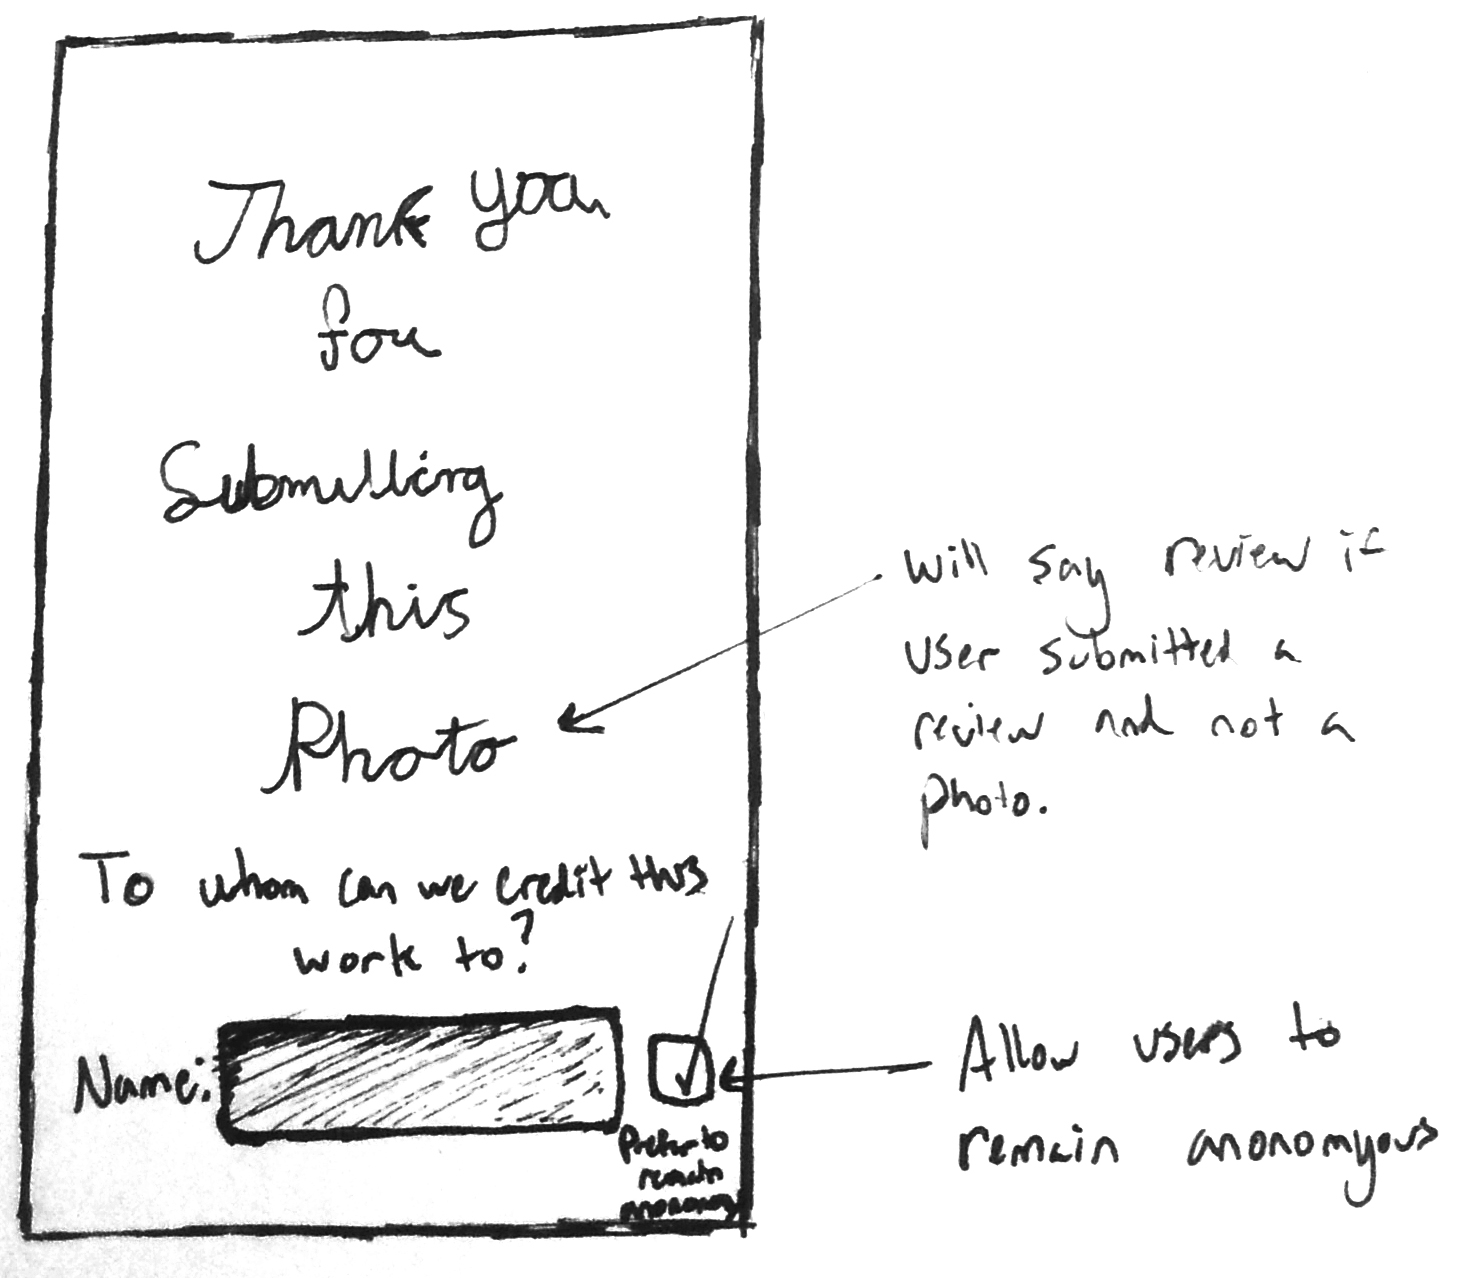 Thank you
for
Submitting
this
Photo
To whom can we credit this
work to?
Name:
Prefer to
remain
anonomy
will say review if
user submitted a
review and not a
photo.
Allow users to
remain anonomyous